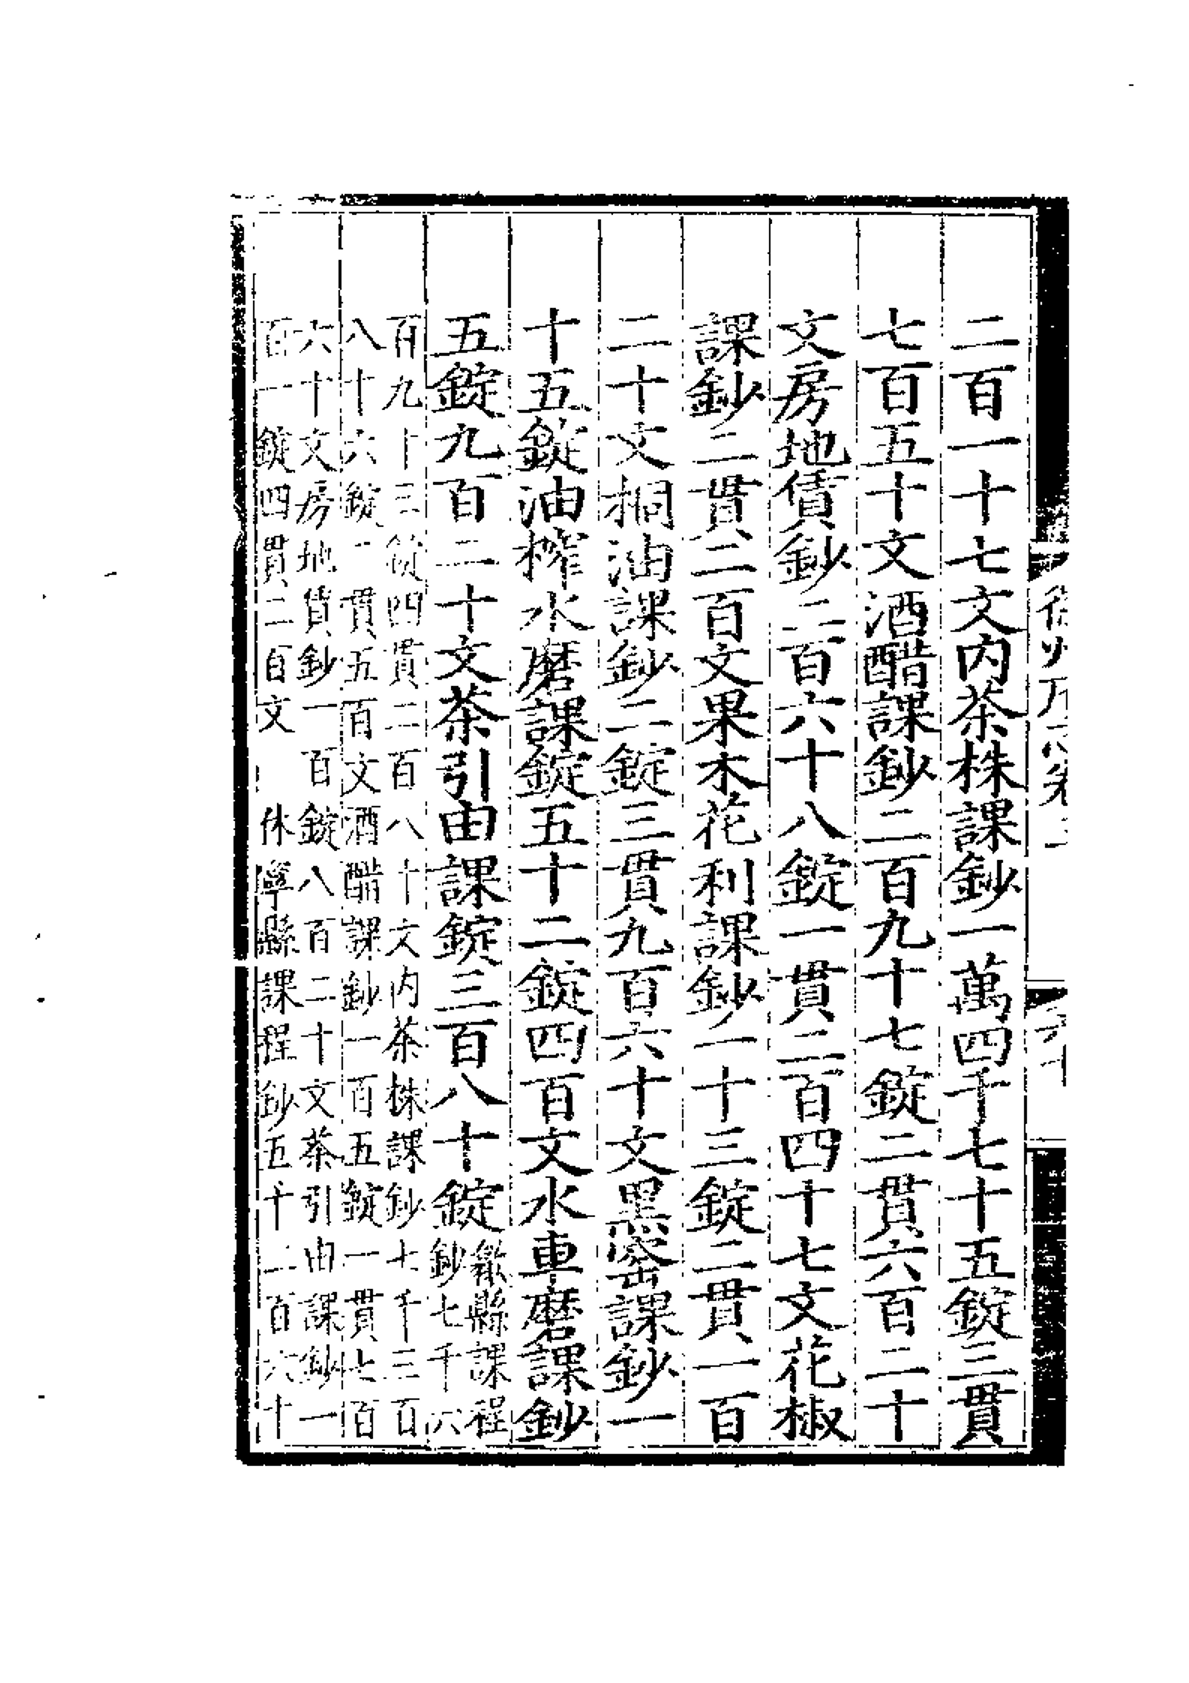 二百一十七文内茶株課鈔一萬四千七十五錠三貫
七百五十文酒醋課鈔二百九十七錠二貫六百二十
文房地賃鈔二百六十八錠一貫二百四十七文花椒
課鈔二貫二百文果木花利課鈔一十三錠二貫一百
二十文桐油課鈔二錠三貫九百六十文黑窑課鈔一
十五錠油榨水磨課錠五十二錠四百文水車磨課鈔
五錠九百二十文茶引由課錠三百八十錠
歙縣課程
鈔七千六
百九十三錠四貫二百八十文内茶株課鈔七千三百
八十六錠一貫五百文酒醋課鈔一百五錠一貫七百
六十文房地賃鈔一百錠八百二十文茶引由課鈔一
百一錠四貫二百文 休寧縣課程鈔五千二百六十